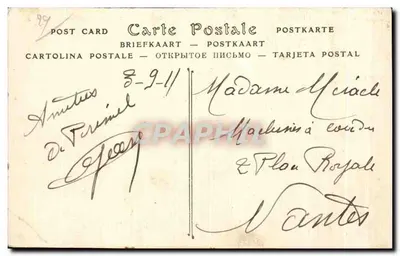 POST CARD Carte Postale POSTKARTE
BRIEFKAART — POSTKAART
CARTOLINA POSTALE — ОТКРЫТОЕ ПИСЬМО — TARJETA POSTAL
8-9-11
Amitiés
de
Madame
Machines à coudre
2 Place Royale
Nantes
CPAPHIL